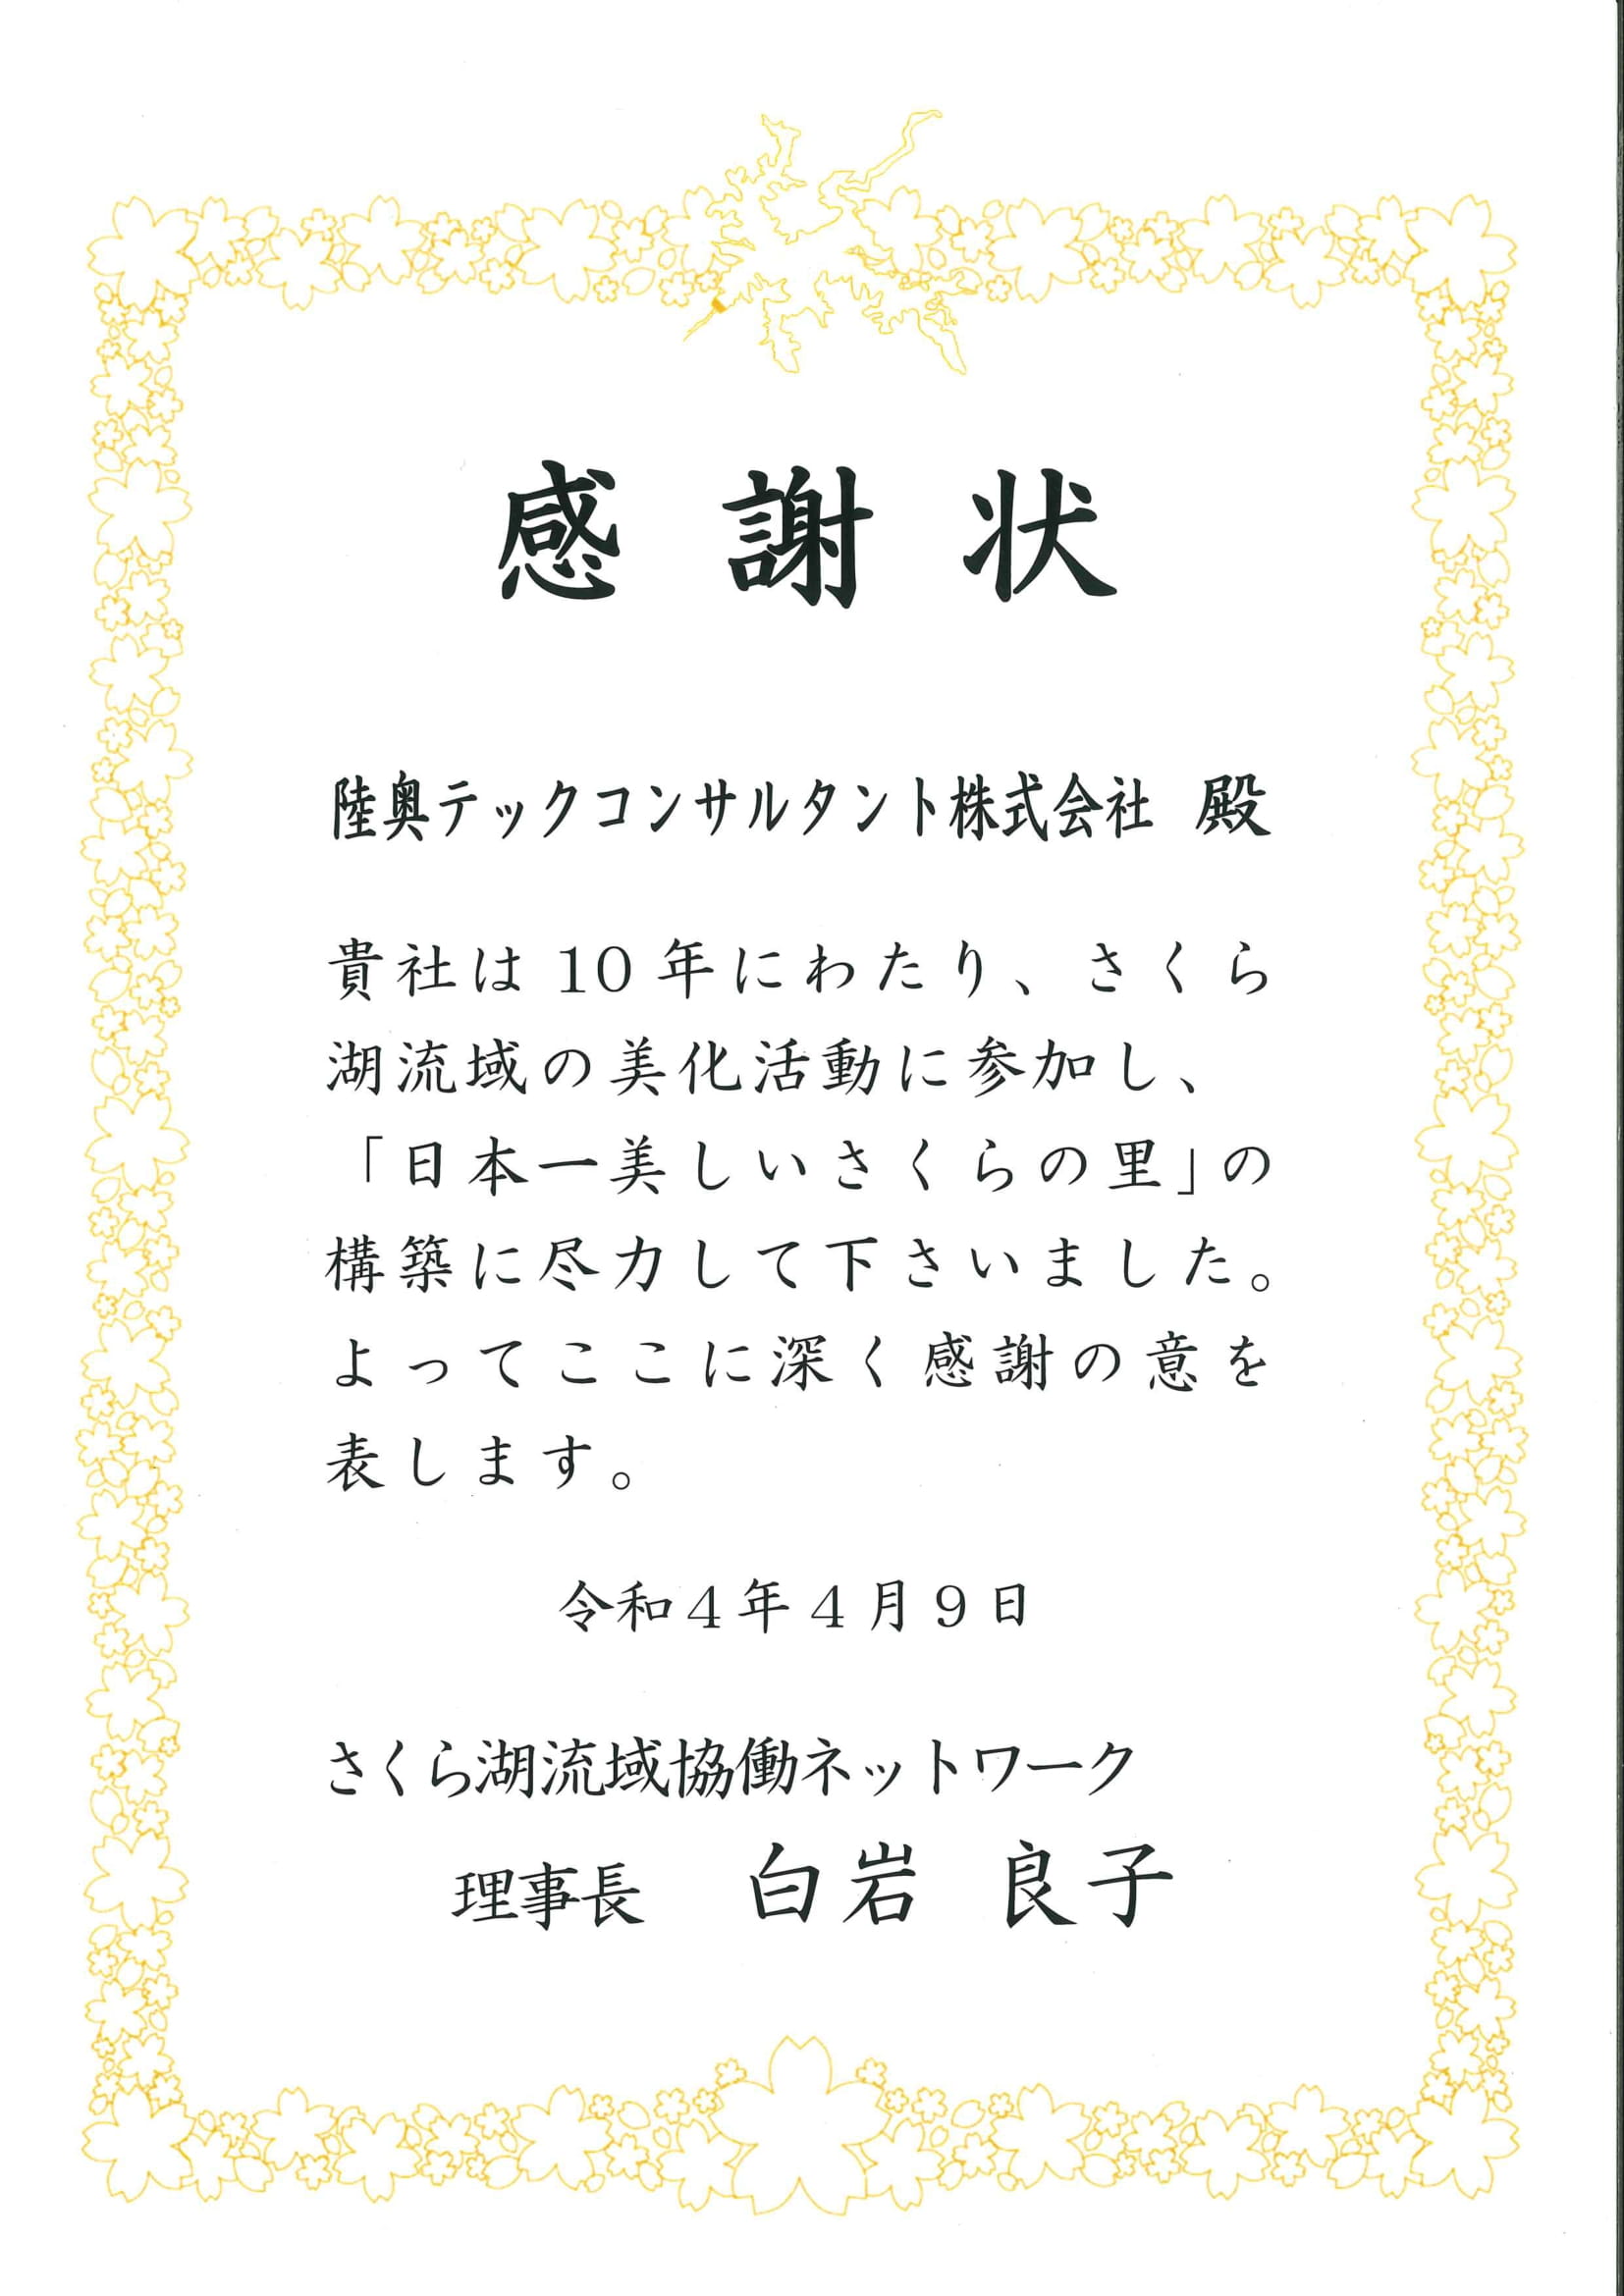 感謝状
陸奥テックコンサルタント株式会社 殿
貴社は10年にわたり、さくら
湖流域の美化活動に参加し、
「日本一美しいさくらの里」の
構築に尽力して下さいました。
よってここに深く感謝の意を
表します。
令和4年4月9日
さくら湖流域協働ネットワーク
理事長 白岩 良子